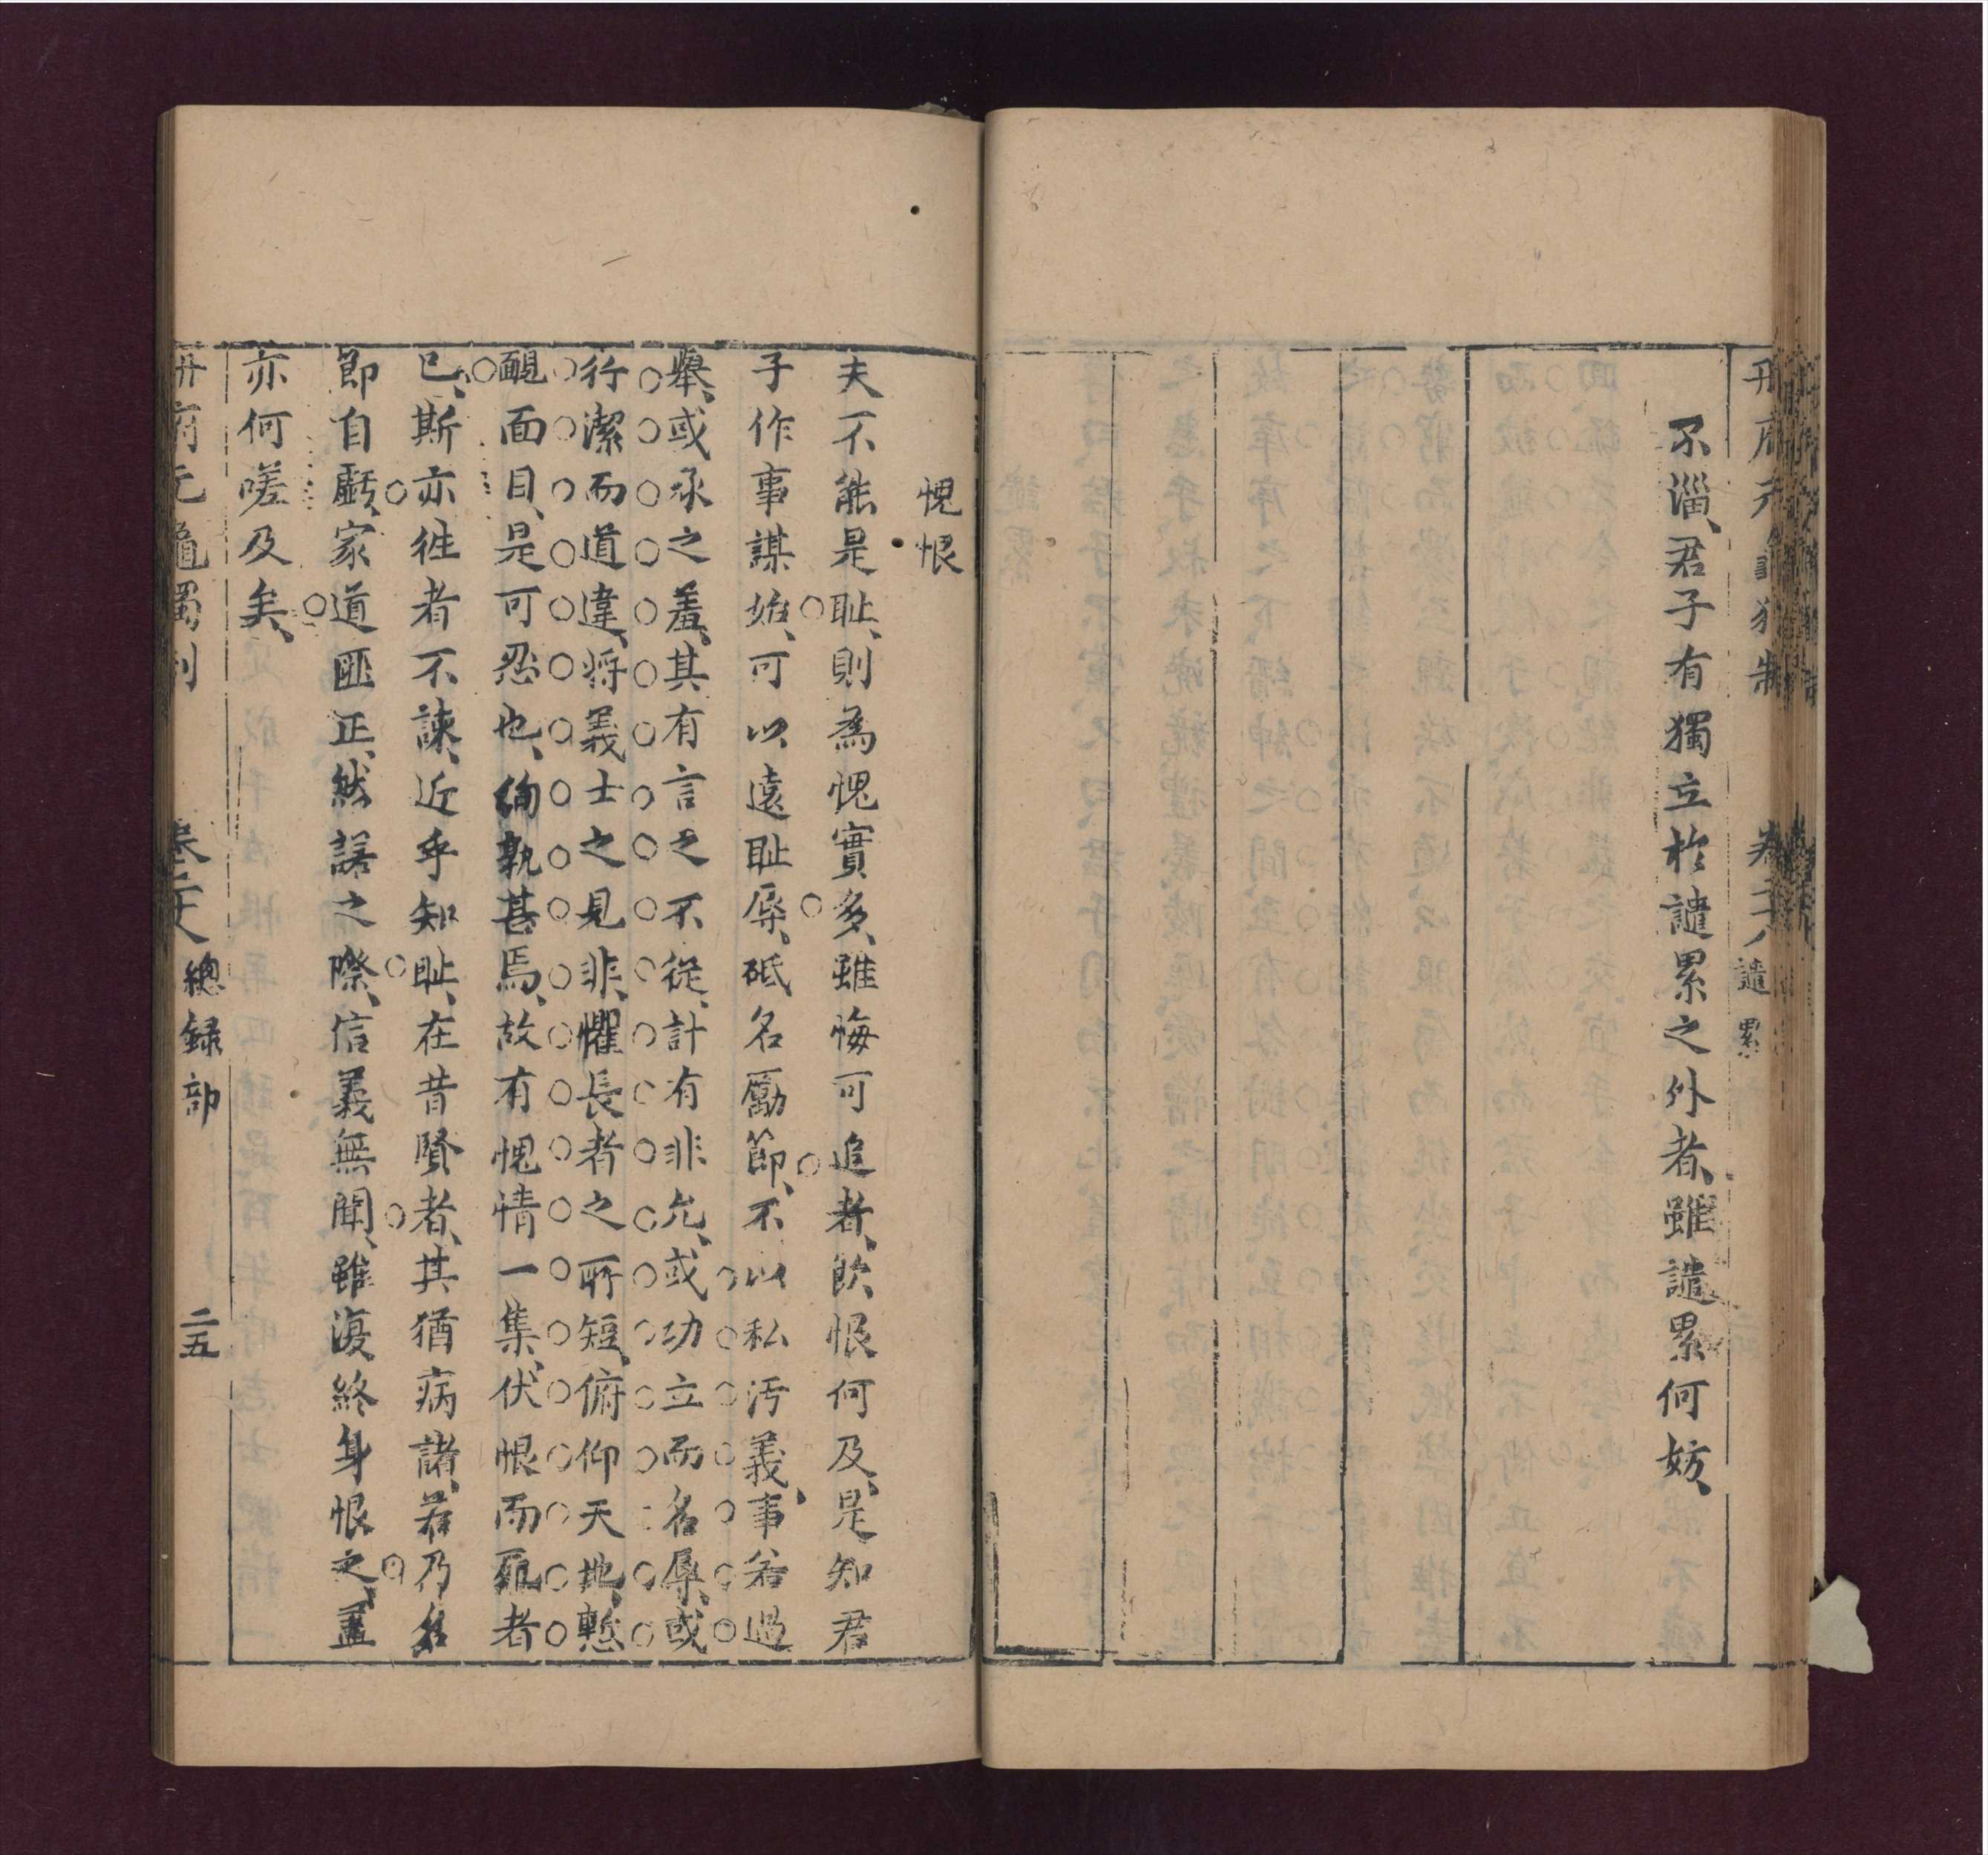 不淄、君子有獨立於譴累之外者、雖譴累何妨、
愧恨
夫不能是恥、則為愧實多、雖悔可追者、飲恨何及、是知君
子作事謀始、可以遠恥辱、砥名勵節、不以私汚義、事若過
舉、或承之羞、其有言之不從、計有非允、或功立而名辱、或
行潔而道違、將義士之見非、懼長者之所短、俯仰天地、慙
靦面目、是可忍也、徇孰甚焉、故有愧情一集、伏恨而死者
已、斯亦徃者不諫、近乎知恥、在昔賢者、其猶病諸、若乃名
節自虧、家道匪正、然諾之際、信義無聞、雖復終身恨之、盖
亦何嗟及矣、
冊府元龜獨制 卷二十八 總録部 二五